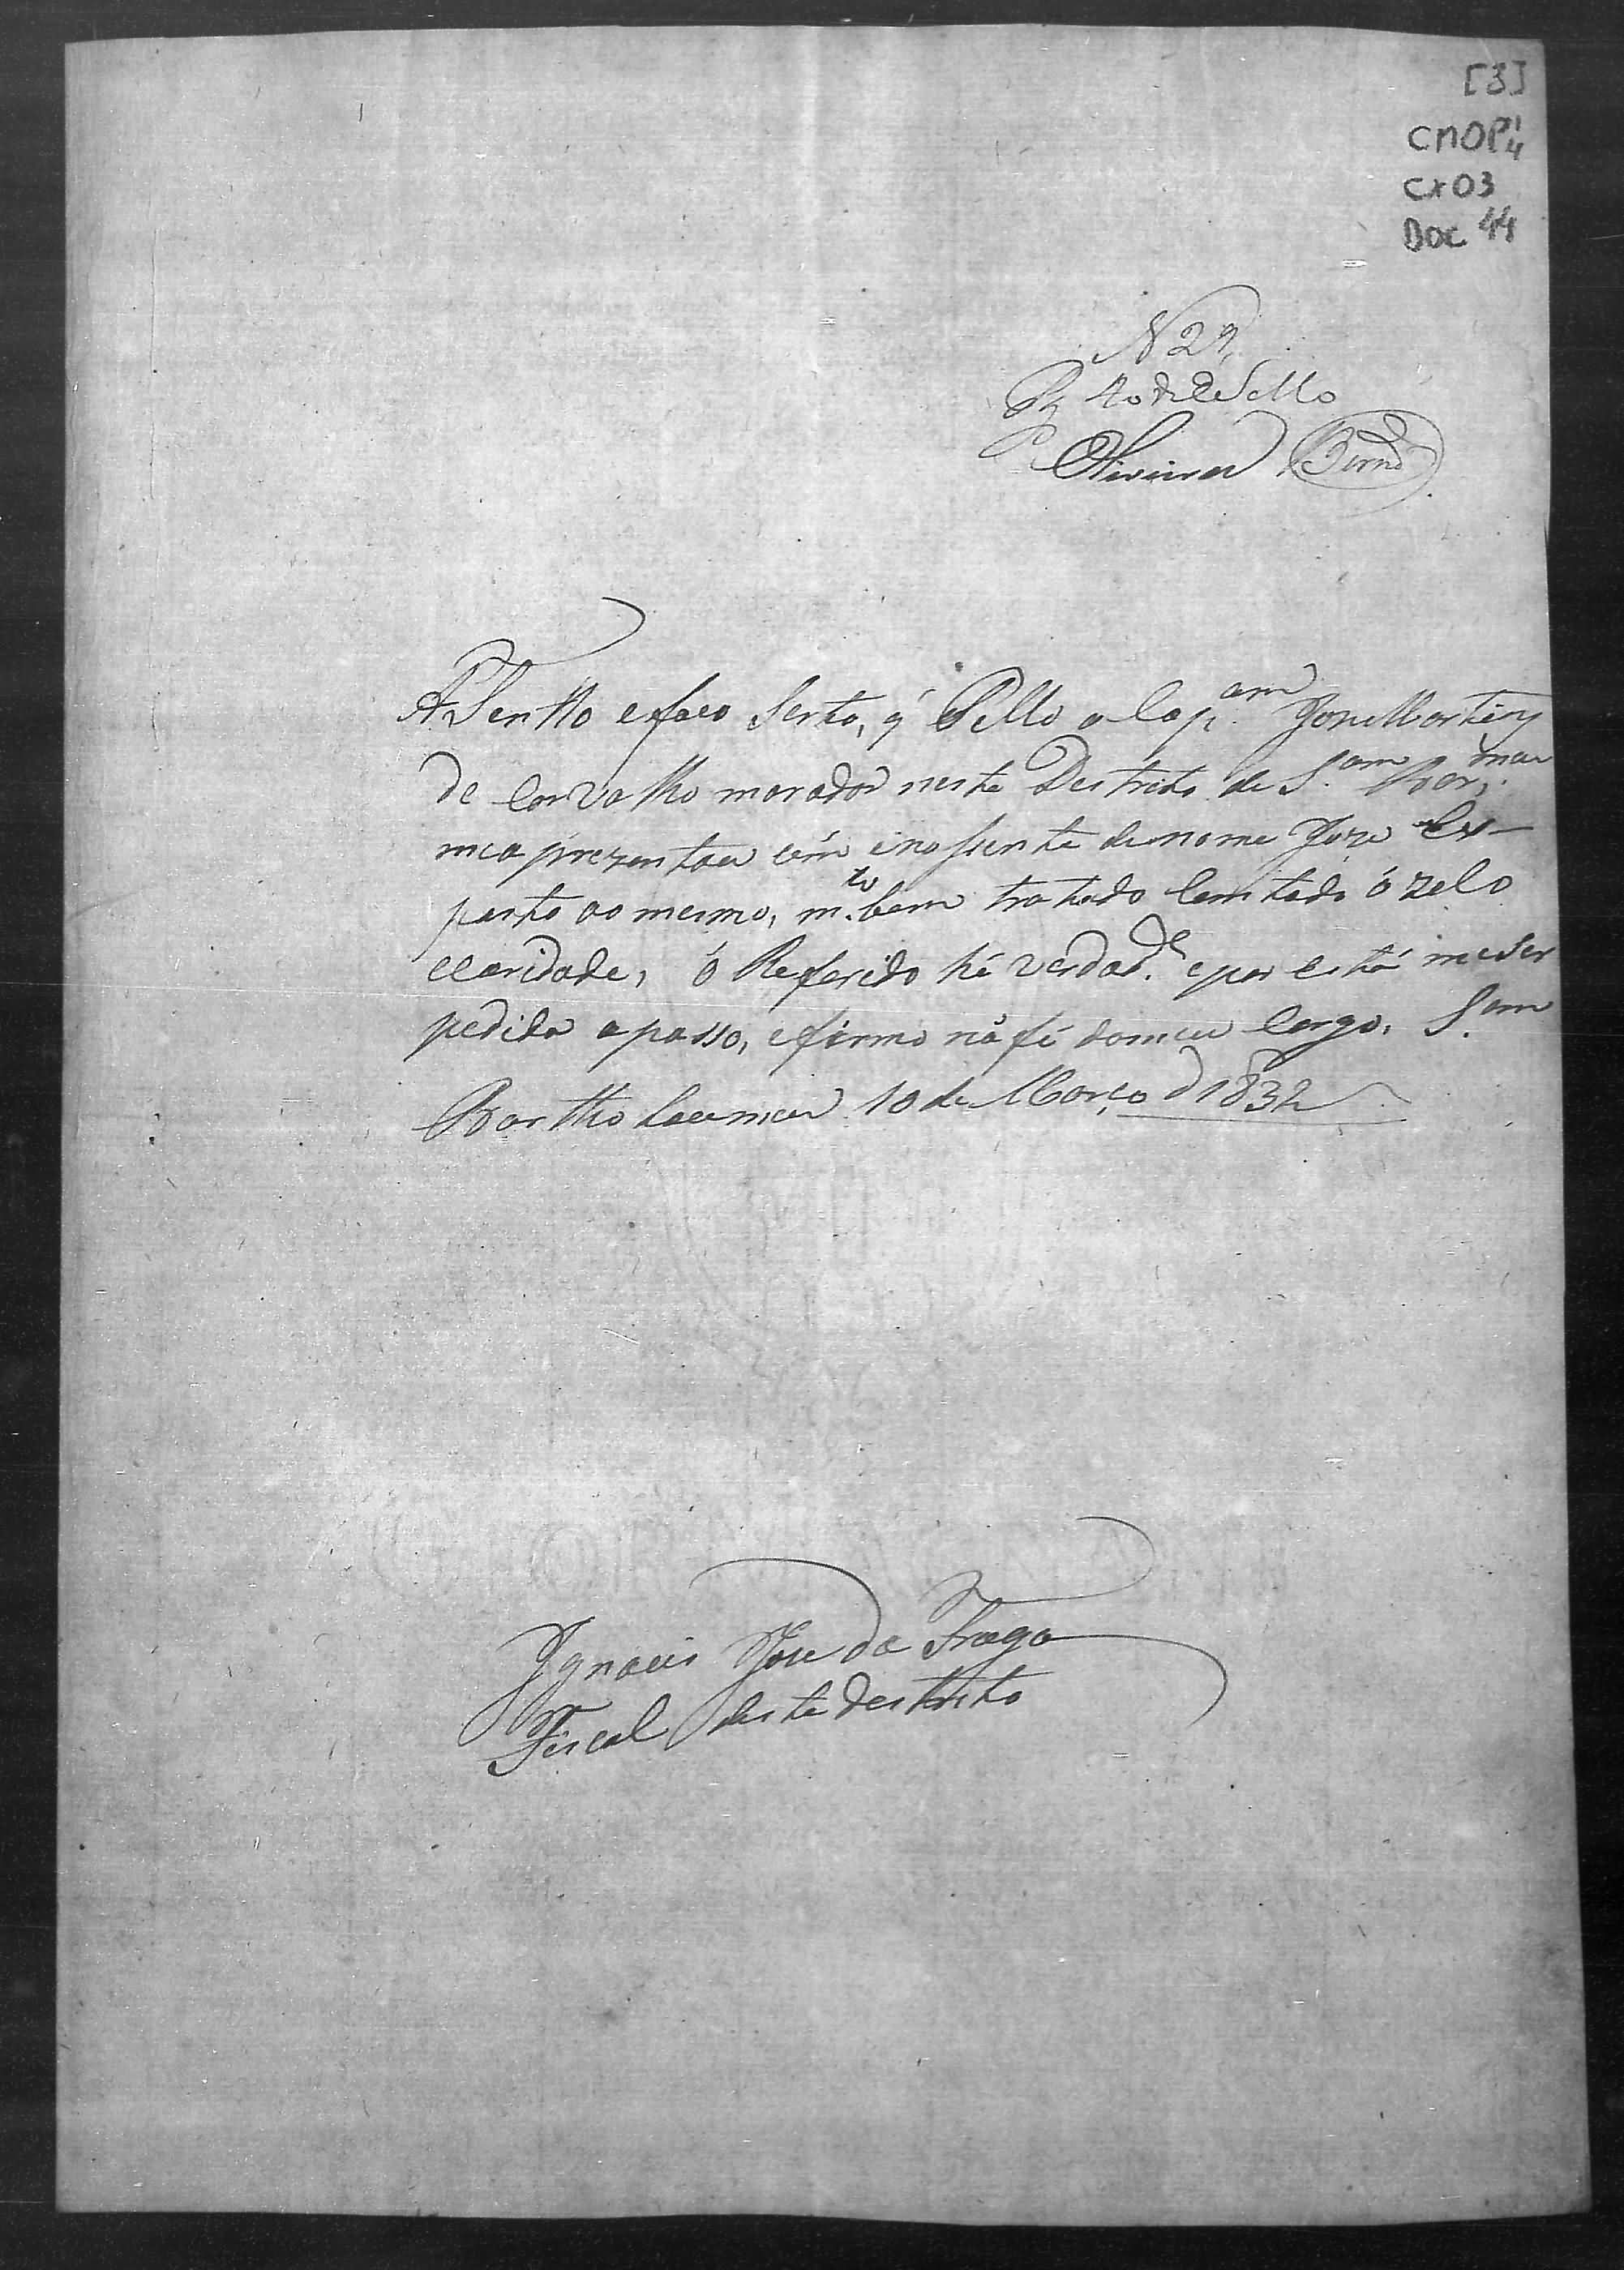 [3]
CMOP 1/4
Cx 03
Doc 44
N 29
Pg 40 rs de Sello
Oliveira Bernd
ASentto e faco Serto, q' Pello o Cap.am Joze Martins
de Carvalho morador neste Destrito de S.am Bar,meu
me aprezentou eím inosente de nome Joze Ex-
posto ao mesmo, m.to bem tratado Com todo ó zelo
ecaridade, ó Referido hé verdad.e e por está me ser
pedida a passo, e firmo ná fé domeu Cargo, S.am
Bartholaumeu 10 de Março d 1832
Ignacio Joze da Fraga
Fiscal deste destrito